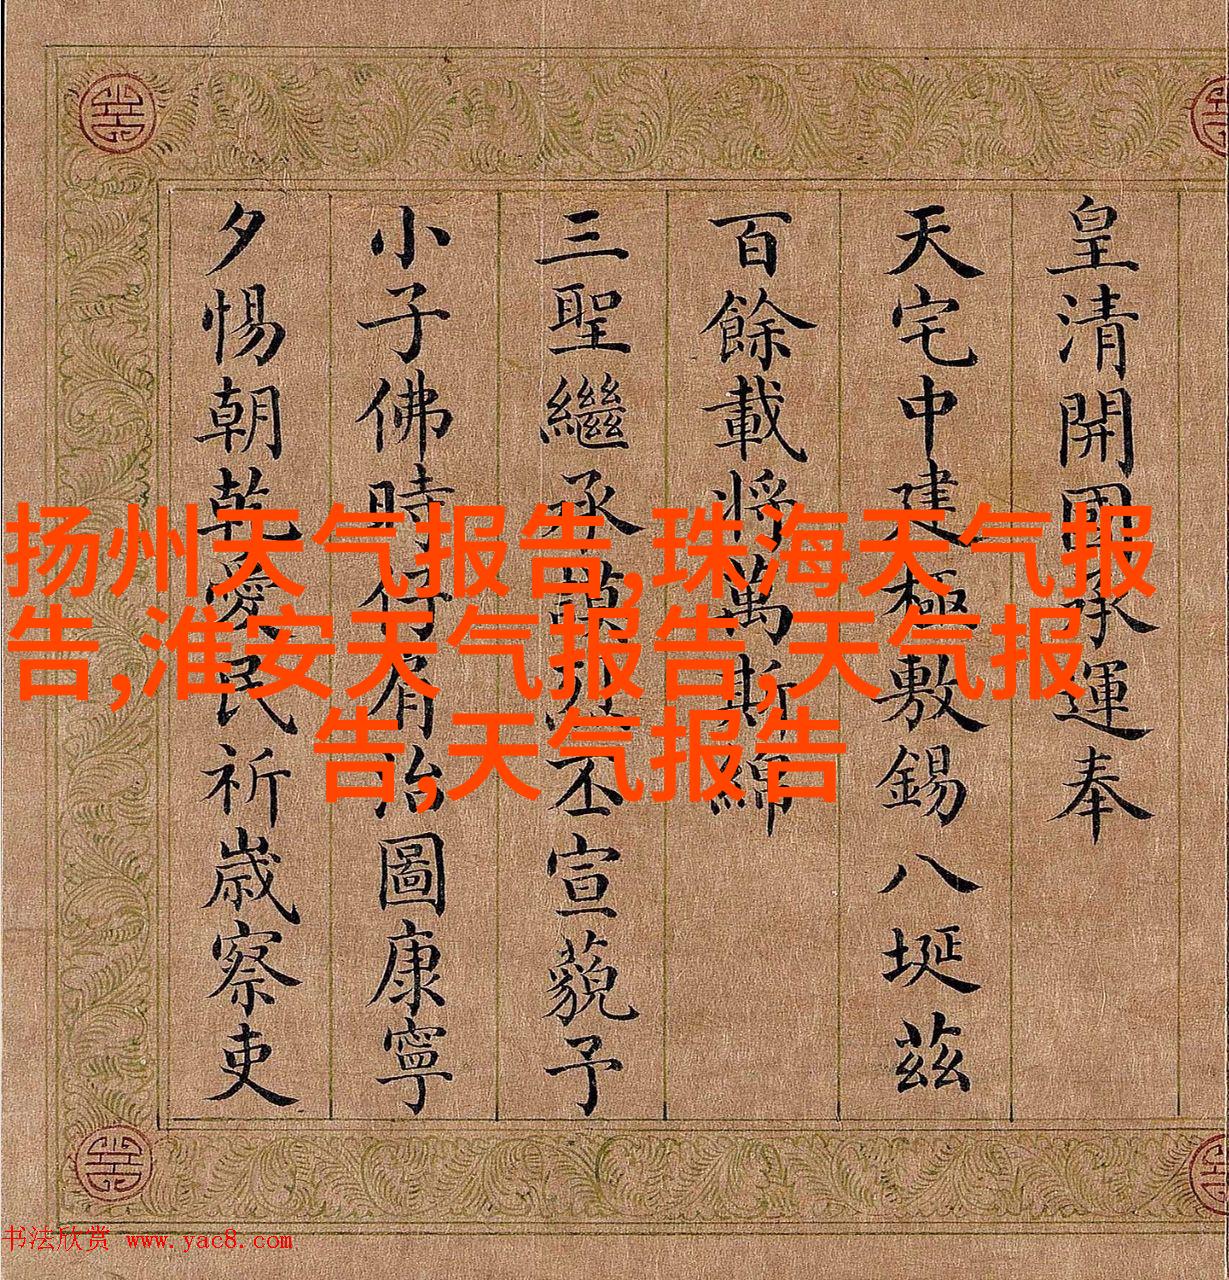 皇清開國承運奉
天宅中建極敷錫八埏茲
百餘載將萬斯綿
三聖繼承丕宣藐予
小子佛時治圖康寧
夕惕朝乾愛民祈歲察吏
扬州天气报告,珠海天气报
告,淮安天气报告,天气报
告,天气报告
书法欣赏 www.yac8.com